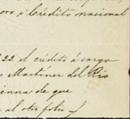 oro ó Crédito nacional
22 el crédito á cargo
Martinez del Rio
de que
al otro folio